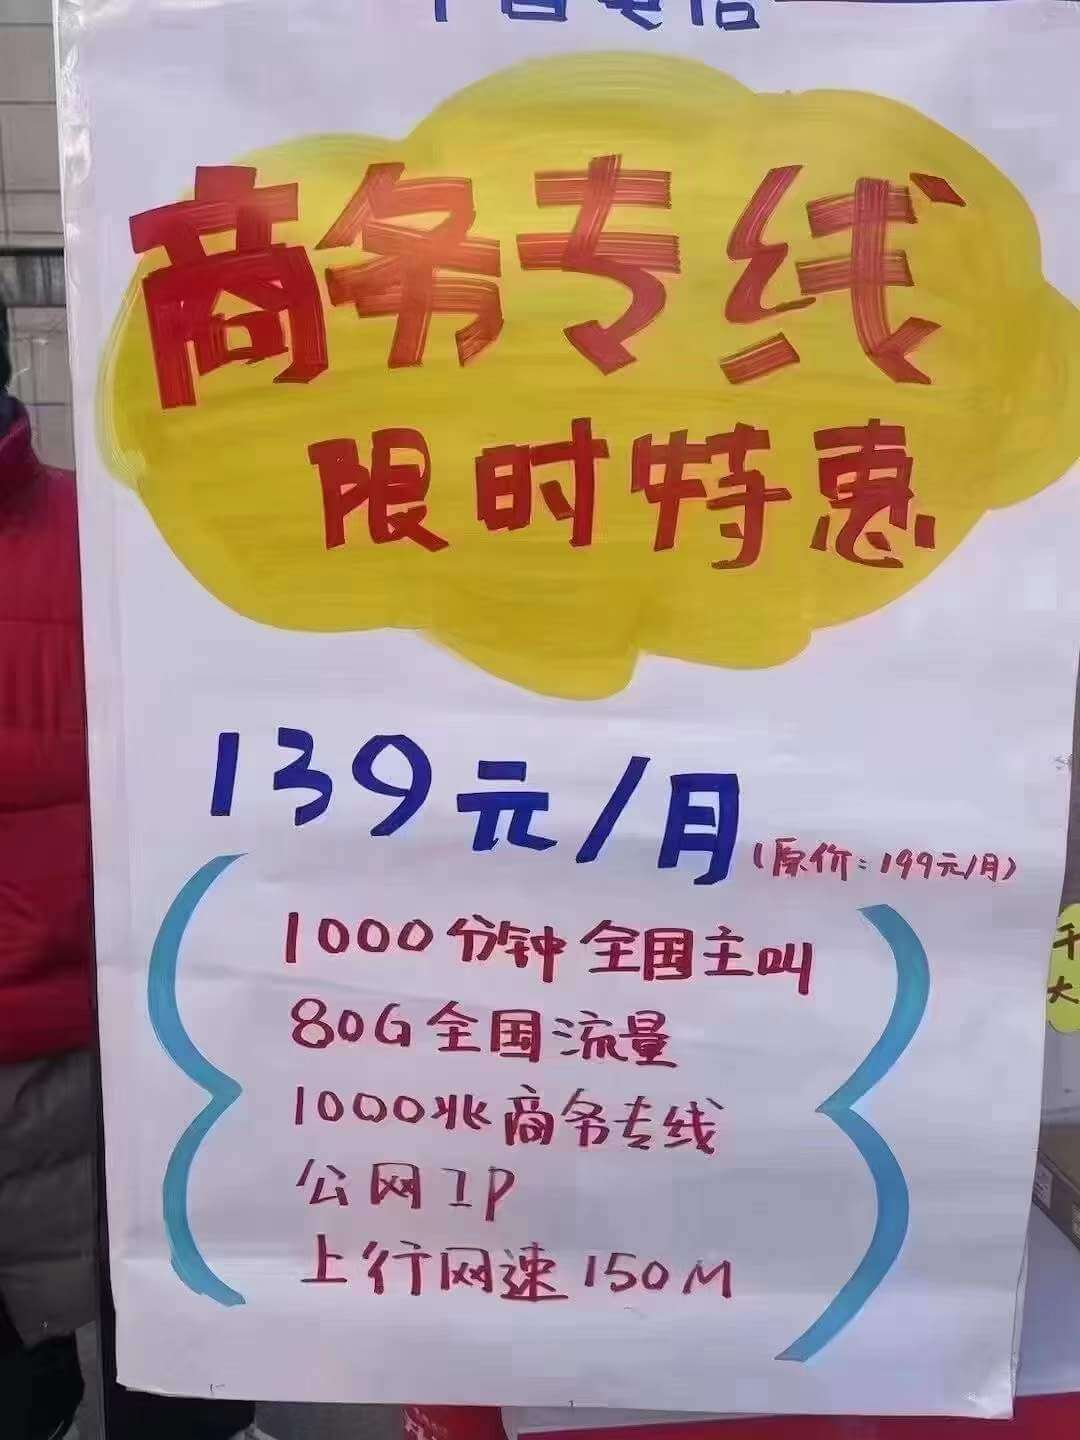 中国电信
商务专线
限时特惠
139元/月(原价:199元/月)
1000分钟全国主叫
80G全国流量
1000兆商务专线
公网IP
上行网速150M